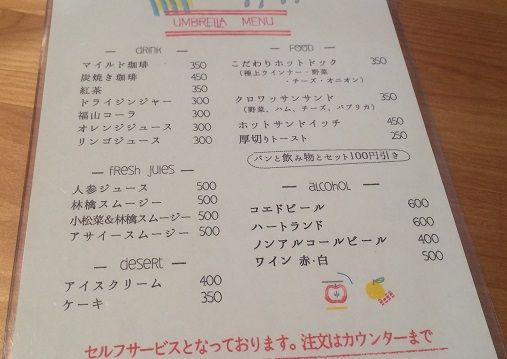 UMBRELLA MENU
— DRINK —
マイルド珈琲 350
炭焼き珈琲 450
紅茶 350
ドライジンジャー 300
福山コーラ 300
オレンジジュース 300
リンゴジュース 300
— FRESH JUIES —
人参ジュース 500
林檎スムージー 500
小松菜&林檎スムージー 500
アサイースムージー 500
— DESERT —
アイスクリーム 400
ケーキ 350
— FOOD —
こだわりホットドック 350
(極上ウインナー・野菜
・チーズ・オニオン)
クロワッサンサンド 350
(野菜、ハム、チーズ、パプリカ)
ホットサンドイッチ 450
厚切りトースト 250
パンと飲み物とセット100円引き
— ALCOHOL —
コエドビール 600
ハートランド 600
ノンアルコールビール 400
ワイン 赤・白 500
セルフサービスとなっております。注文はカウンターまで